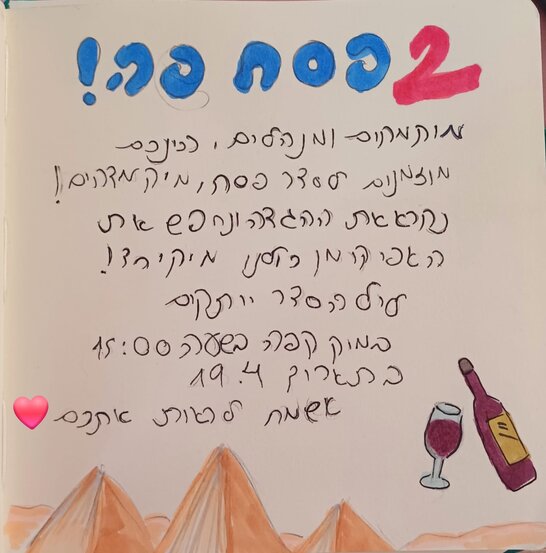 2פסח פה!
מוקמקים ומנהלים, הינכם
מוזמנים לסדר פסח, מיקמדהים!
נקרא את ההגדה ונחפש את
האפיקומן כולנו מיקיחד!
ליל הסדר יתקים
במוק קפה בשעה 15:00
בתאריך 19.4
אשמח לראות אתכם